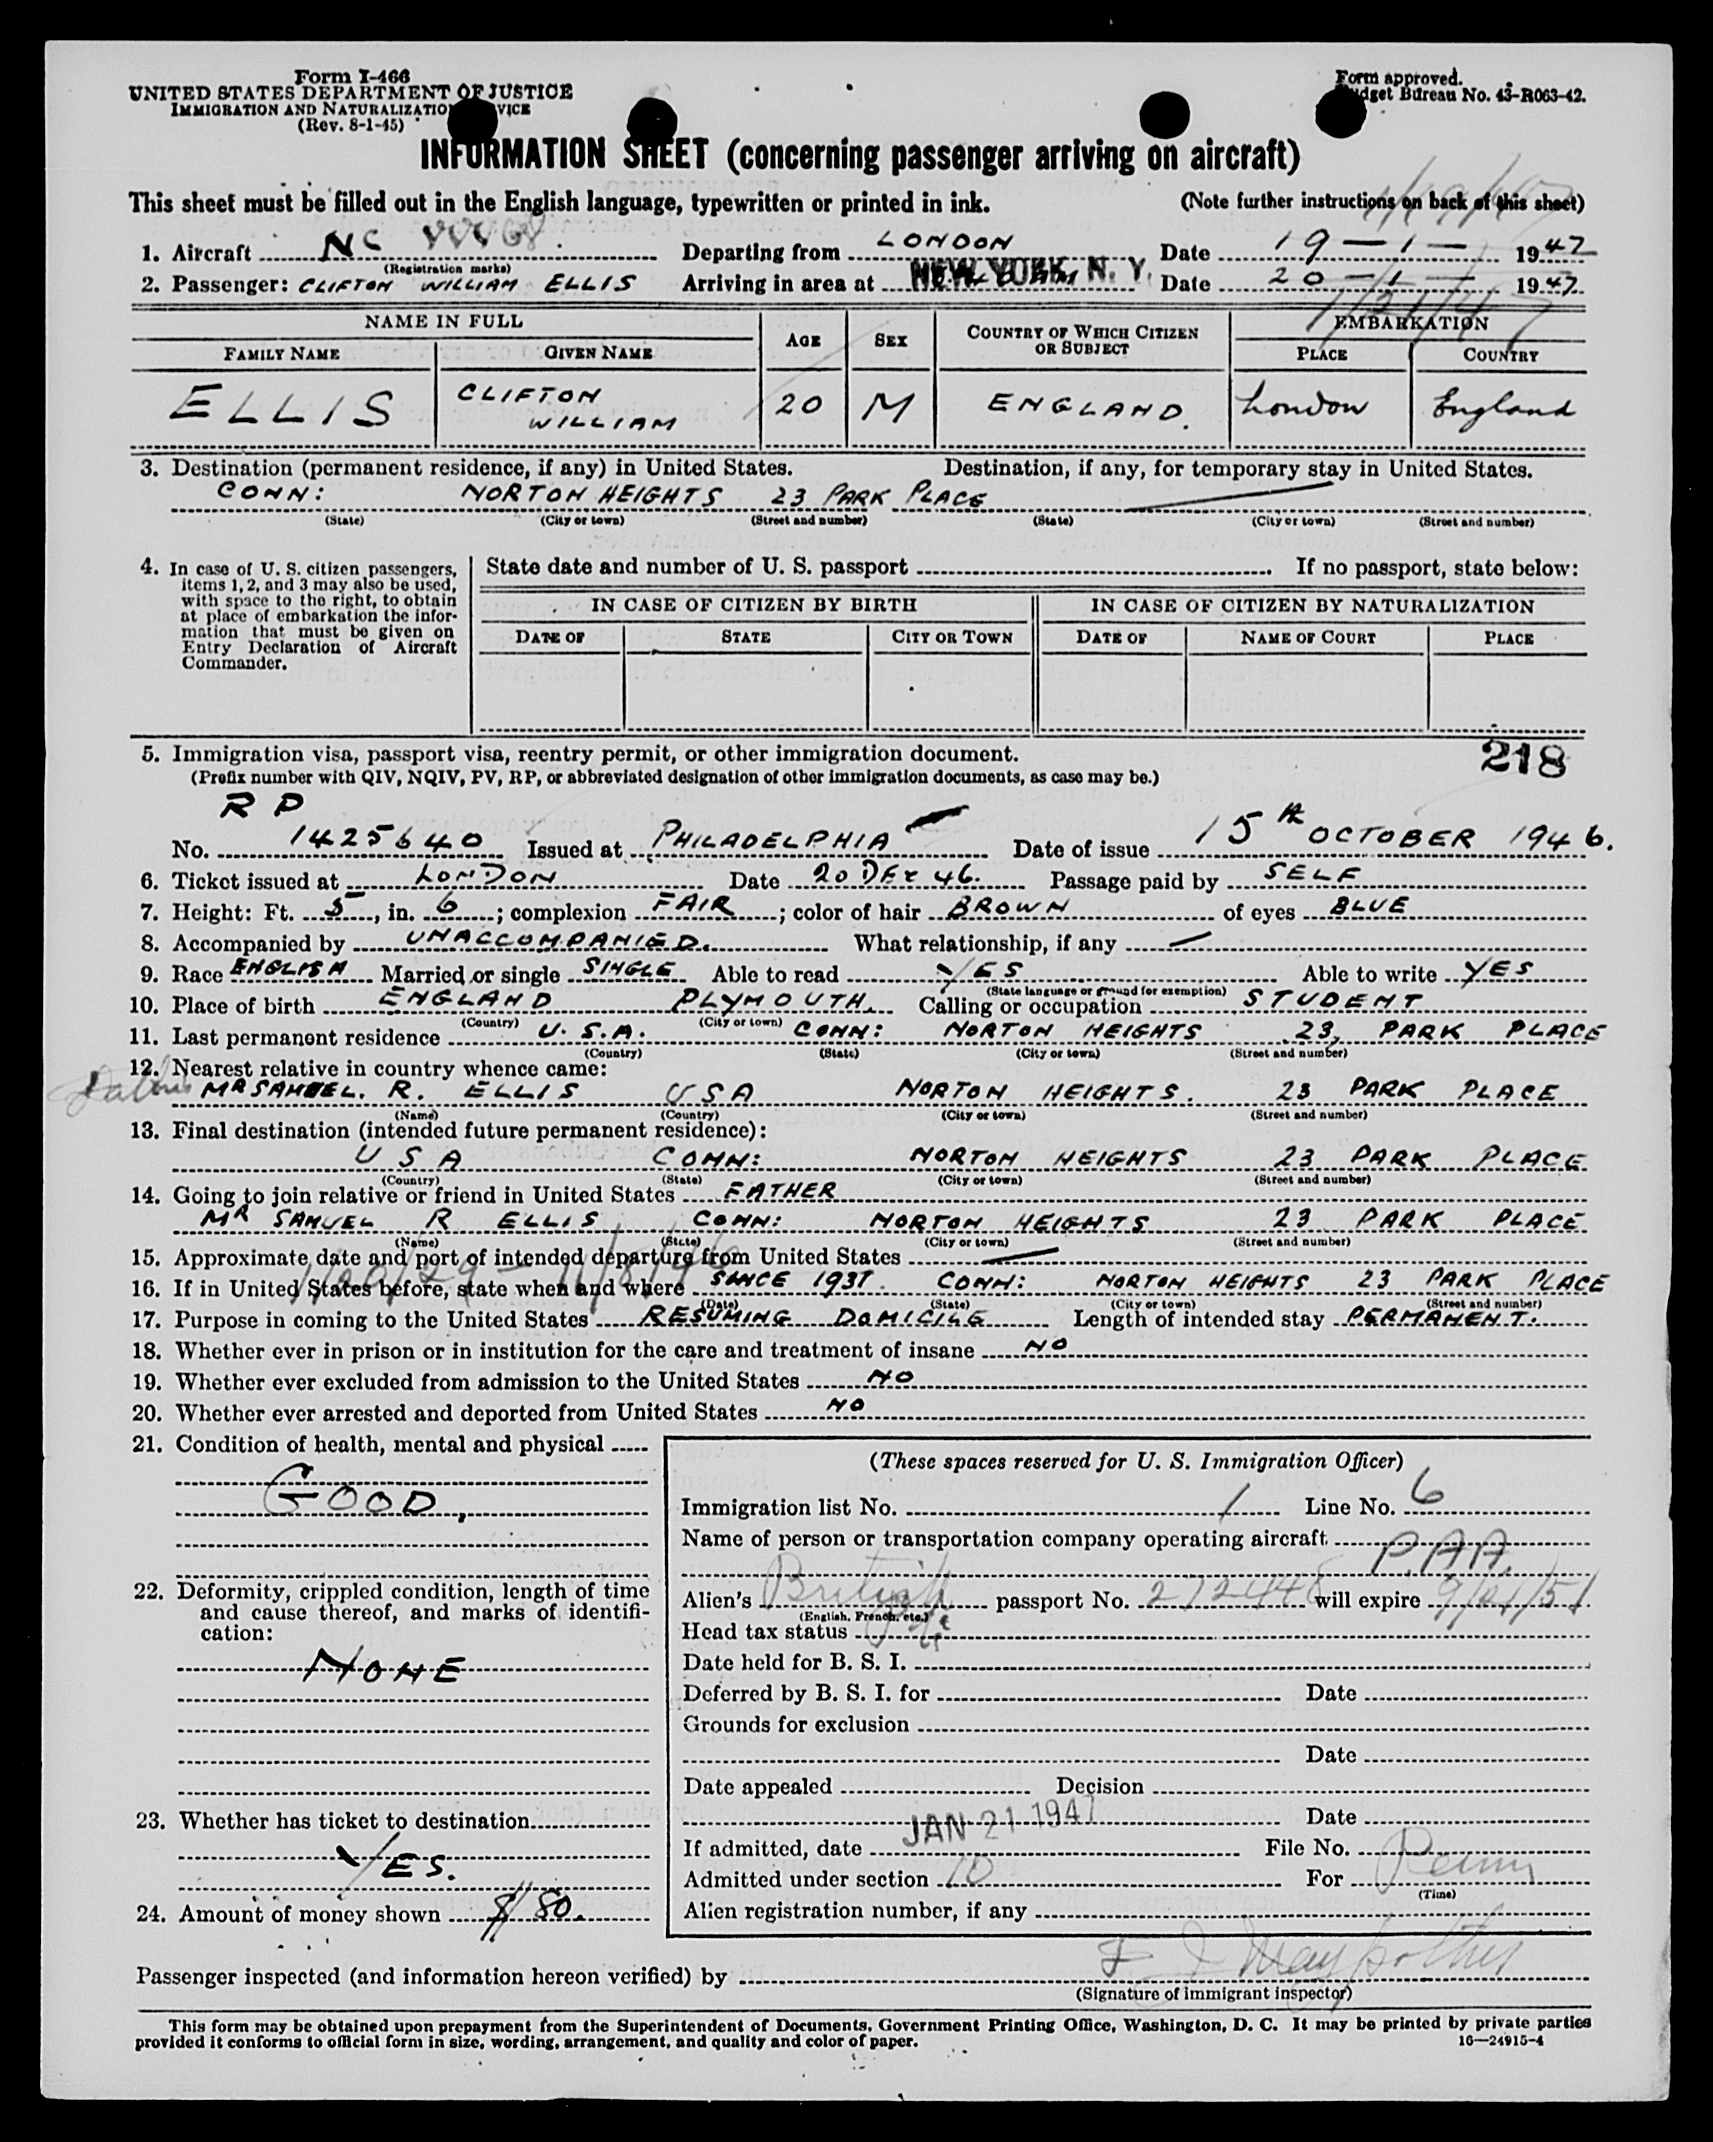 Form I-466
UNITED STATES DEPARTMENT OF JUSTICE
IMMIGRATION AND NATURALIZATION SERVICE
(Rev. 8-1-45)
Form approved.
Budget Bureau No. 43-R063-42.
INFORMATION SHEET (concerning passenger arriving on aircraft)
This sheet must be filled out in the English language, typewritten or printed in ink. (Note further instructions on back of this sheet)
1. Aircraft NC Departing from LONDON Date 19-1- 1947
(Registration marks)
2. Passenger: CLIFTON WILLIAM ELLIS Arriving in area at NEW YORK, N. Y. Date 20-1- 1947
1/21/47
NAME IN FULL AGE SEX COUNTRY OF WHICH CITIZEN OR SUBJECT EMBARKATION
FAMILY NAME GIVEN NAME PLACE COUNTRY
ELLIS CLIFTON WILLIAM 20 M ENGLAND. London England
3. Destination (permanent residence, if any) in United States. Destination, if any, for temporary stay in United States.
CONN: NORTON HEIGHTS 23 PARK PLACE
(State) (City or town) (Street and number) (State) (City or town) (Street and number)
4. In case of U. S. citizen passengers, items 1, 2, and 3 may also be used, with space to the right, to obtain at place of embarkation the information that must be given on Entry Declaration of Aircraft Commander.
State date and number of U. S. passport . If no passport, state below:
IN CASE OF CITIZEN BY BIRTH IN CASE OF CITIZEN BY NATURALIZATION
DATE OF STATE CITY OR TOWN DATE OF NAME OF COURT PLACE
5. Immigration visa, passport visa, reentry permit, or other immigration document. 218
(Prefix number with QIV, NQIV, PV, RP, or abbreviated designation of other immigration documents, as case may be.)
R P
No. 1425640 Issued at PHILADELPHIA Date of issue 15th OCTOBER 1946.
6. Ticket issued at LONDON Date 20 DEC 46. Passage paid by SELF
7. Height: Ft. 5, in. 6; complexion FAIR; color of hair BROWN of eyes BLUE
8. Accompanied by UNACCOMPANIED. What relationship, if any —
9. Race ENGLISH Married or single SINGLE Able to read YES Able to write YES
(State language or ground for exemption)
10. Place of birth ENGLAND PLYMOUTH. Calling or occupation STUDENT
(Country) (City or town)
11. Last permanent residence U. S. A. CONN: NORTON HEIGHTS 23, PARK PLACE
(Country) (State) (City or town) (Street and number)
12. Nearest relative in country whence came:
MR SAMUEL. R. ELLIS USA NORTON HEIGHTS. 23 PARK PLACE
(Name) (Country) (City or town) (Street and number)
13. Final destination (intended future permanent residence):
USA CONN: NORTON HEIGHTS 23 PARK PLACE
(Country) (State) (City or town) (Street and number)
14. Going to join relative or friend in United States FATHER
MR SAMUEL R ELLIS CONN: NORTON HEIGHTS 23 PARK PLACE
(Name) (State) (City or town) (Street and number)
15. Approximate date and port of intended departure from United States —
16. If in United States before, state when and where SINCE 1937. CONN: NORTON HEIGHTS 23 PARK PLACE
(Date) (State) (City or town) (Street and number)
17. Purpose in coming to the United States RESUMING DOMICILE Length of intended stay PERMANENT.
18. Whether ever in prison or in institution for the care and treatment of insane NO
19. Whether ever excluded from admission to the United States NO
20. Whether ever arrested and deported from United States NO
21. Condition of health, mental and physical
GOOD,
22. Deformity, crippled condition, length of time and cause thereof, and marks of identification:
NONE
23. Whether has ticket to destination
YES.
24. Amount of money shown $80.
(These spaces reserved for U. S. Immigration Officer)
Immigration list No. 1 Line No. 6
Name of person or transportation company operating aircraft P.A.A.
Alien's British passport No. 272448 will expire 9/24/51
(English, French, etc.)
Head tax status
Date held for B. S. I.
Deferred by B. S. I. for Date
Grounds for exclusion
Date
Date appealed Decision
Date
If admitted, date JAN 21 1947 File No.
Admitted under section 10 For Perm
(Time)
Alien registration number, if any
Passenger inspected (and information hereon verified) by
(Signature of immigrant inspector)
This form may be obtained upon prepayment from the Superintendent of Documents, Government Printing Office, Washington, D. C. It may be printed by private parties
provided it conforms to official form in size, wording, arrangement, and quality and color of paper. 16—24915-4